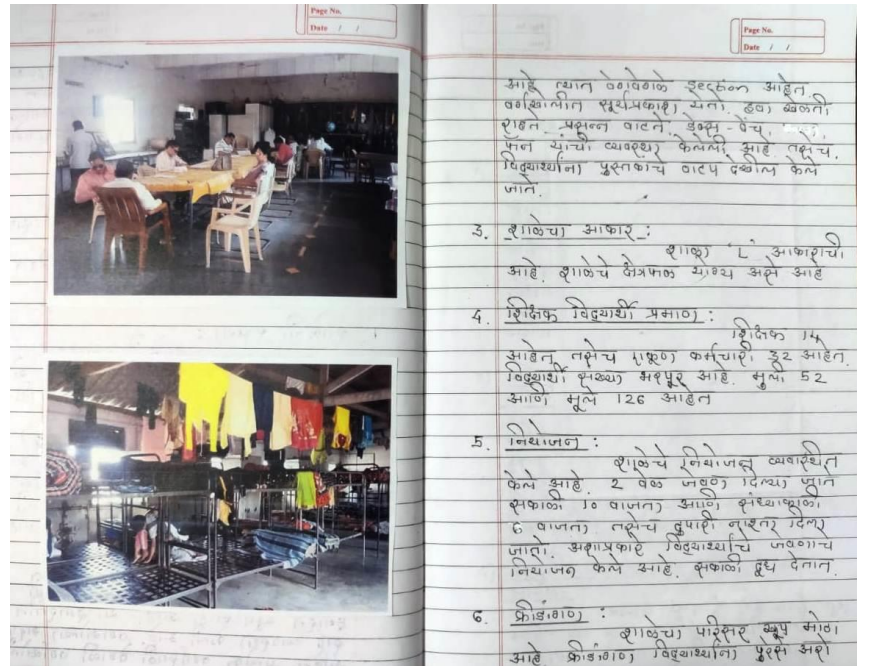 Page No.
Date / /
Page No.
Date / /
आहे त्यात वेगवेगळे section आहेत.
वर्गखोलीत सूर्यप्रकाश येतो, हवा खेळती
राहते. प्रसन्न वाटते. डेक्स - बेंच,
फॅन यांची व्यवस्था केलेली आहे. तसेच,
विद्यार्थ्यांना पुस्तकाचे वाटप देखील केले
जाते.
3. शाळेचा आकार :
शाळा 'L' आकाराची
आहे. शाळेचे क्षेत्रफळ योग्य असे आहे
4. शिक्षक विद्यार्थी प्रमाण :
शिक्षक 14
आहेत तसेच एकूण कर्मचारी 32 आहेत.
विद्यार्थी संख्या भरपूर आहे. मुली 52
आणि मुले 126 आहेत
5. नियोजन :
शाळेचे नियोजन व्यवस्थित
केले आहे. 2 वेळ जेवण दिल्या जाते
सकाळी 10 वाजता आणि संध्याकाळी
6 वाजता तसेच दुपारी नाश्ता दिला
जातो. अशाप्रकारे विद्यार्थ्यांचे जेवणाचे
नियोजन केले आहे. सकाळी दूध देतात.
6. क्रीडांगण :
शाळेचा परिसर खूप मोठा
आहे क्रीडांगण विद्यार्थ्यांना पुरेसे असे